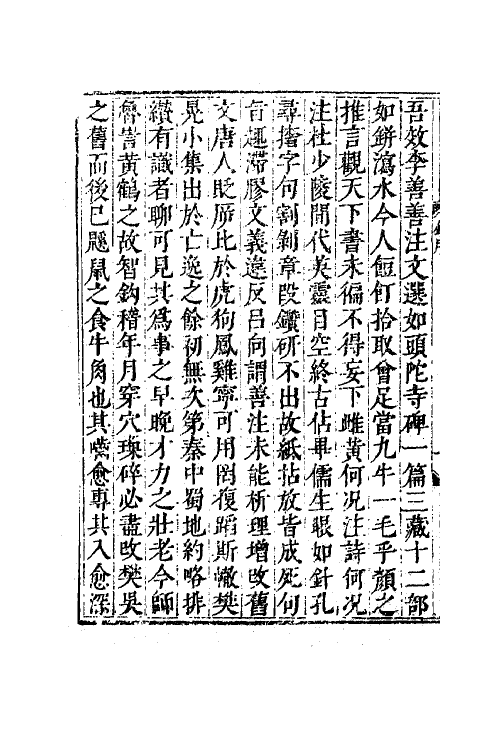 吾效李善善注文選如頭陀寺碑一篇三藏十二部
如缾瀉水今人餖飣拾取曾足當九牛一毛乎顏之
推言觀天下書未徧不得妄下雌黃何況注詩何況
注杜少陵間代英靈目空終古佔畢儒生眼如針孔
尋撦字句割剝章段鑽研不出故紙拈放皆成死句
旨趣滯膠文義違反呂向謂善注未能析理增改舊
文唐人貶斥比於虎狗鳳雞寧可用罔復蹈斯轍樊
晃小集出於亡逸之餘初無次第秦中蜀地約略排
纘有識者聊可見其為事之早晚才力之壯老今師
魯訔黃鶴之故智鉤稽年月穿穴瑣碎必盡改樊吳
之舊而後已鼷鼠之食牛角也其嚙愈專其入愈深